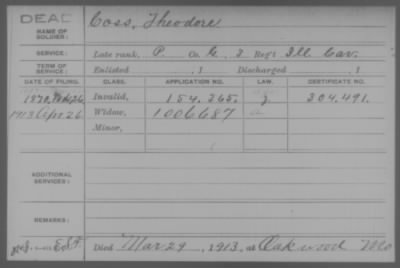 DEAD
NAME OF SOLDIER: Coss, Theodore
SERVICE: Late rank, P. Co. G, 3 Reg't Ill. Cav.
TERM OF SERVICE: Enlisted , 1 Discharged , 1
DATE OF FILING. CLASS. APPLICATION NO. LAW. CERTIFICATE NO.
1870, 26 Invalid, 154.265. 204.491.
1913 Apr. 26 Widow, 1006687
Minor,
ADDITIONAL SERVICES:
REMARKS:
Died Mar 29, 1913, at Oakwood Mo